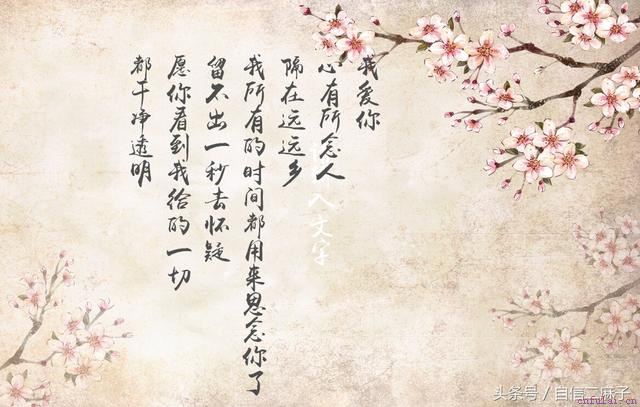 我爱你
心有所念人
隔在远远乡
我所有的时间都用来思念你了
留不出一秒去怀疑
愿你看到我给的一切
都干净透明
入文字
头条号 / 自信二麻子
cnfulai.cn